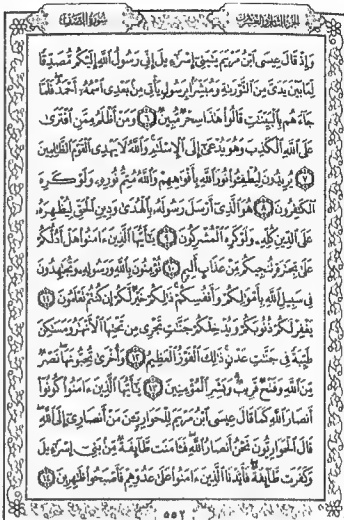 سُورَةُ الصَّفِّ
الجُزْءُ الثَّامِنُ وَالعِشْرُونَ
وَإِذْ قَالَ عِيسَى ابْنُ مَرْيَمَ يَٰبَنِىٓ إِسْرَٰٓءِيلَ إِنِّى رَسُولُ اللَّهِ إِلَيْكُم مُّصَدِّقًا
لِّمَا بَيْنَ يَدَىَّ مِنَ التَّوْرَىٰةِ وَمُبَشِّرًۢا بِرَسُولٍ يَأْتِى مِنۢ بَعْدِى اسْمُهُۥٓ أَحْمَدُ ۖ فَلَمَّا
جَآءَهُم بِالْبَيِّنَٰتِ قَالُوا۟ هَٰذَا سِحْرٌ مُّبِينٌ ٦ وَمَنْ أَظْلَمُ مِمَّنِ افْتَرَىٰ
عَلَى اللَّهِ الْكَذِبَ وَهُوَ يُدْعَىٰٓ إِلَى الْإِسْلَٰمِ ۚ وَاللَّهُ لَا يَهْدِى الْقَوْمَ الظَّٰلِمِينَ
٧ يُرِيدُونَ لِيُطْفِـُٔوا۟ نُورَ اللَّهِ بِأَفْوَٰهِهِمْ وَاللَّهُ مُتِمُّ نُورِهِۦ وَلَوْ كَرِهَ
الْكَٰفِرُونَ ٨ هُوَ الَّذِىٓ أَرْسَلَ رَسُولَهُۥ بِالْهُدَىٰ وَدِينِ الْحَقِّ لِيُظْهِرَهُۥ
عَلَى الدِّينِ كُلِّهِۦ وَلَوْ كَرِهَ الْمُشْرِكُونَ ٩ يَٰٓأَيُّهَا الَّذِينَ ءَامَنُوا۟ هَلْ أَدُلُّكُمْ
عَلَىٰ تِجَٰرَةٍ تُنجِيكُم مِّنْ عَذَابٍ أَلِيمٍ ١٠ تُؤْمِنُونَ بِاللَّهِ وَرَسُولِهِۦ وَتُجَٰهِدُونَ
فِى سَبِيلِ اللَّهِ بِأَمْوَٰلِكُمْ وَأَنفُسِكُمْ ۚ ذَٰلِكُمْ خَيْرٌ لَّكُمْ إِن كُنتُمْ تَعْلَمُونَ ١١
يَغْفِرْ لَكُمْ ذُنُوبَكُمْ وَيُدْخِلْكُمْ جَنَّٰتٍ تَجْرِى مِن تَحْتِهَا الْأَنْهَٰرُ وَمَسَٰكِنَ
طَيِّبَةً فِى جَنَّٰتِ عَدْنٍ ۚ ذَٰلِكَ الْفَوْزُ الْعَظِيمُ ١٢ وَأُخْرَىٰ تُحِبُّونَهَا ۖ نَصْرٌ
مِّنَ اللَّهِ وَفَتْحٌ قَرِيبٌ ۗ وَبَشِّرِ الْمُؤْمِنِينَ ١٣ يَٰٓأَيُّهَا الَّذِينَ ءَامَنُوا۟ كُونُوٓا۟
أَنصَارَ اللَّهِ كَمَا قَالَ عِيسَى ابْنُ مَرْيَمَ لِلْحَوَارِيِّـۧنَ مَنْ أَنصَارِىٓ إِلَى اللَّهِ ۖ
قَالَ الْحَوَارِيُّونَ نَحْنُ أَنصَارُ اللَّهِ ۖ فَـَٔامَنَت طَّآئِفَةٌ مِّنۢ بَنِىٓ إِسْرَٰٓءِيلَ
وَكَفَرَت طَّآئِفَةٌ ۖ فَأَيَّدْنَا الَّذِينَ ءَامَنُوا۟ عَلَىٰ عَدُوِّهِمْ فَأَصْبَحُوا۟ ظَٰهِرِينَ ١٤
٥٥٢